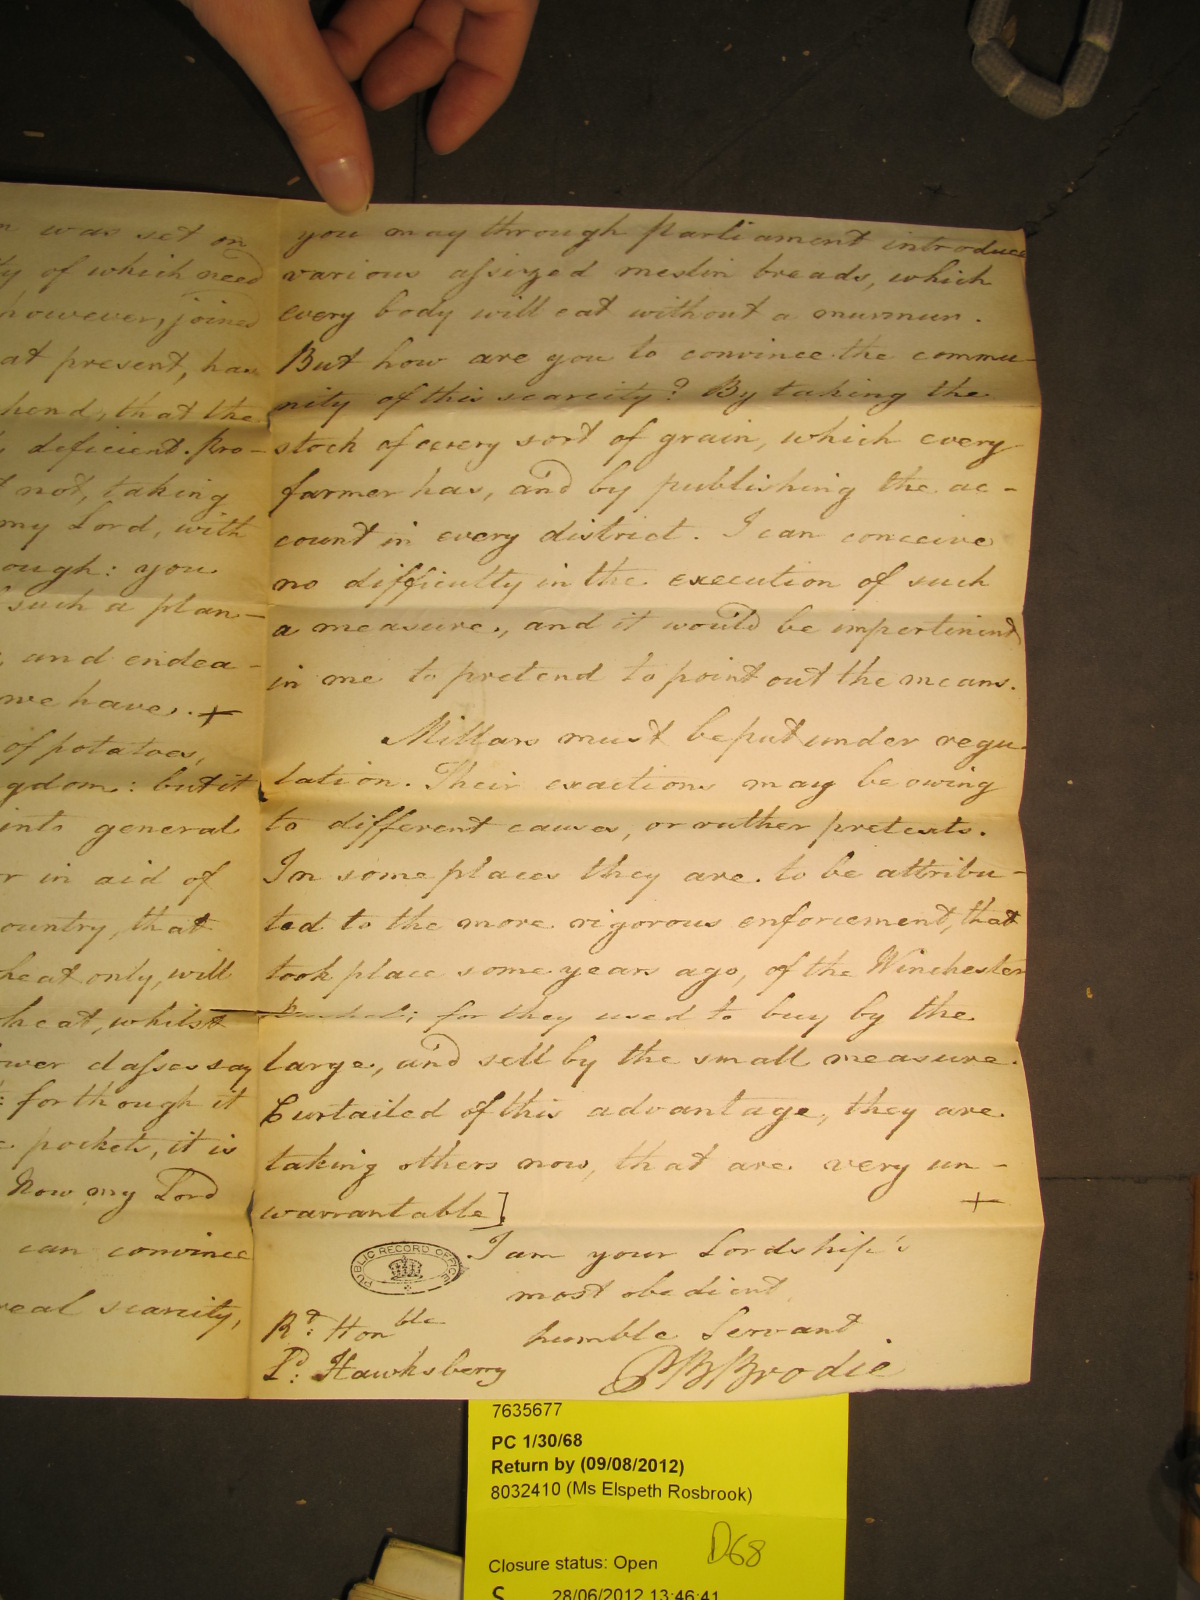 n was set on
ty of which need
however, joined
at present, has
hend, that the
deficient. Pro-
t not, taking
my Lord, with
ough: you
such a plan-
, and endea-
we have. +
of potatoes,
gdom: but it
into general
r in aid of
ountry, that
heat only, will
heat, whilst
ower classes say
: for though it
e pockets, it is
Now my Lord
can convince
real scarcity,
you may through parliament introduce
various assized meslin breads, which
every body will eat without a murmur.
But how are you to convince the commu-
nity of this scarcity? By taking the
stock of every sort of grain, which every
farmer has, and by publishing the ac-
count in every district. I can conceive
no difficulty in the execution of such
a measure, and it would be impertinent
in me to pretend to point out the means.
Millars must be put under regu-
lation. Their exactions may be owing
to different causes, or ruther pretexts.
In some places they are to be attribu-
ted to the more rigorous enforcement, that
took place some years ago, of the Winchester
Bushel; for they used to buy by the
large, and sell by the small measure.
Curtailed of this advantage, they are
taking others now, that are very un-
warrantable] +
I am your Lordship's
most obedient
humble Servant
PBBrodie
Rt: Honble
Ld: Hawksberry
PUBLIC RECORD OFFICE
7635677
PC 1/30/68
Return by (09/08/2012)
8032410 (Ms Elspeth Rosbrook)
D68
Closure status: Open
S 28/06/2012 13:46:41